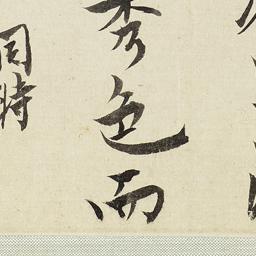 秀色而
同時